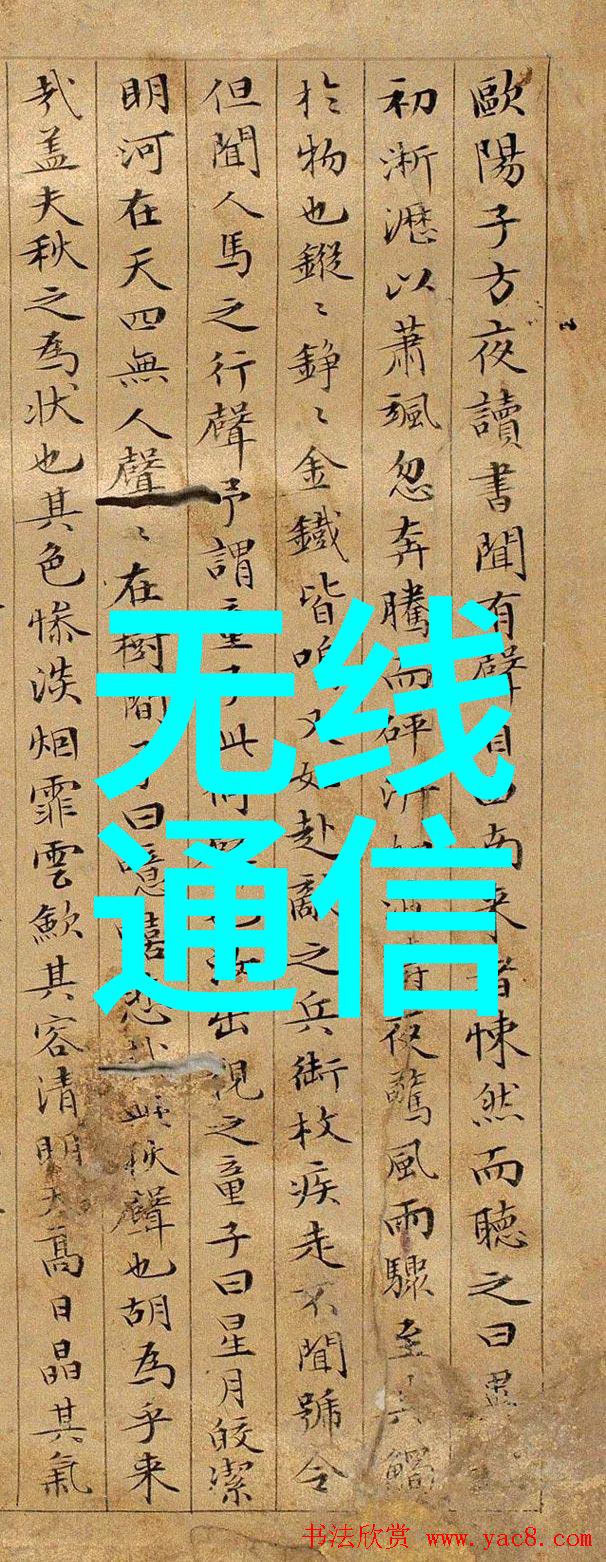 歐陽子方夜讀書聞有聲自西南来者悚然而聽之曰異
初淅瀝以蕭颯忽奔騰而砰湃如夜驚風雨驟至其觸
扵物也鏦〻錚〻金鐵皆鳴又如赴敵之兵銜枚疾走不聞號令
但聞人馬之行聲予謂童子此何聲也汝出視之童子曰星月皎潔
明河在天四無人聲〻在樹間予曰噫嘻悲哉此秋聲也胡為乎来
哉盖夫秋之為状也其色慘淡烟霏雲歛其容清明天髙日晶其氣
无线
通信
书法欣赏 www.yac8.com